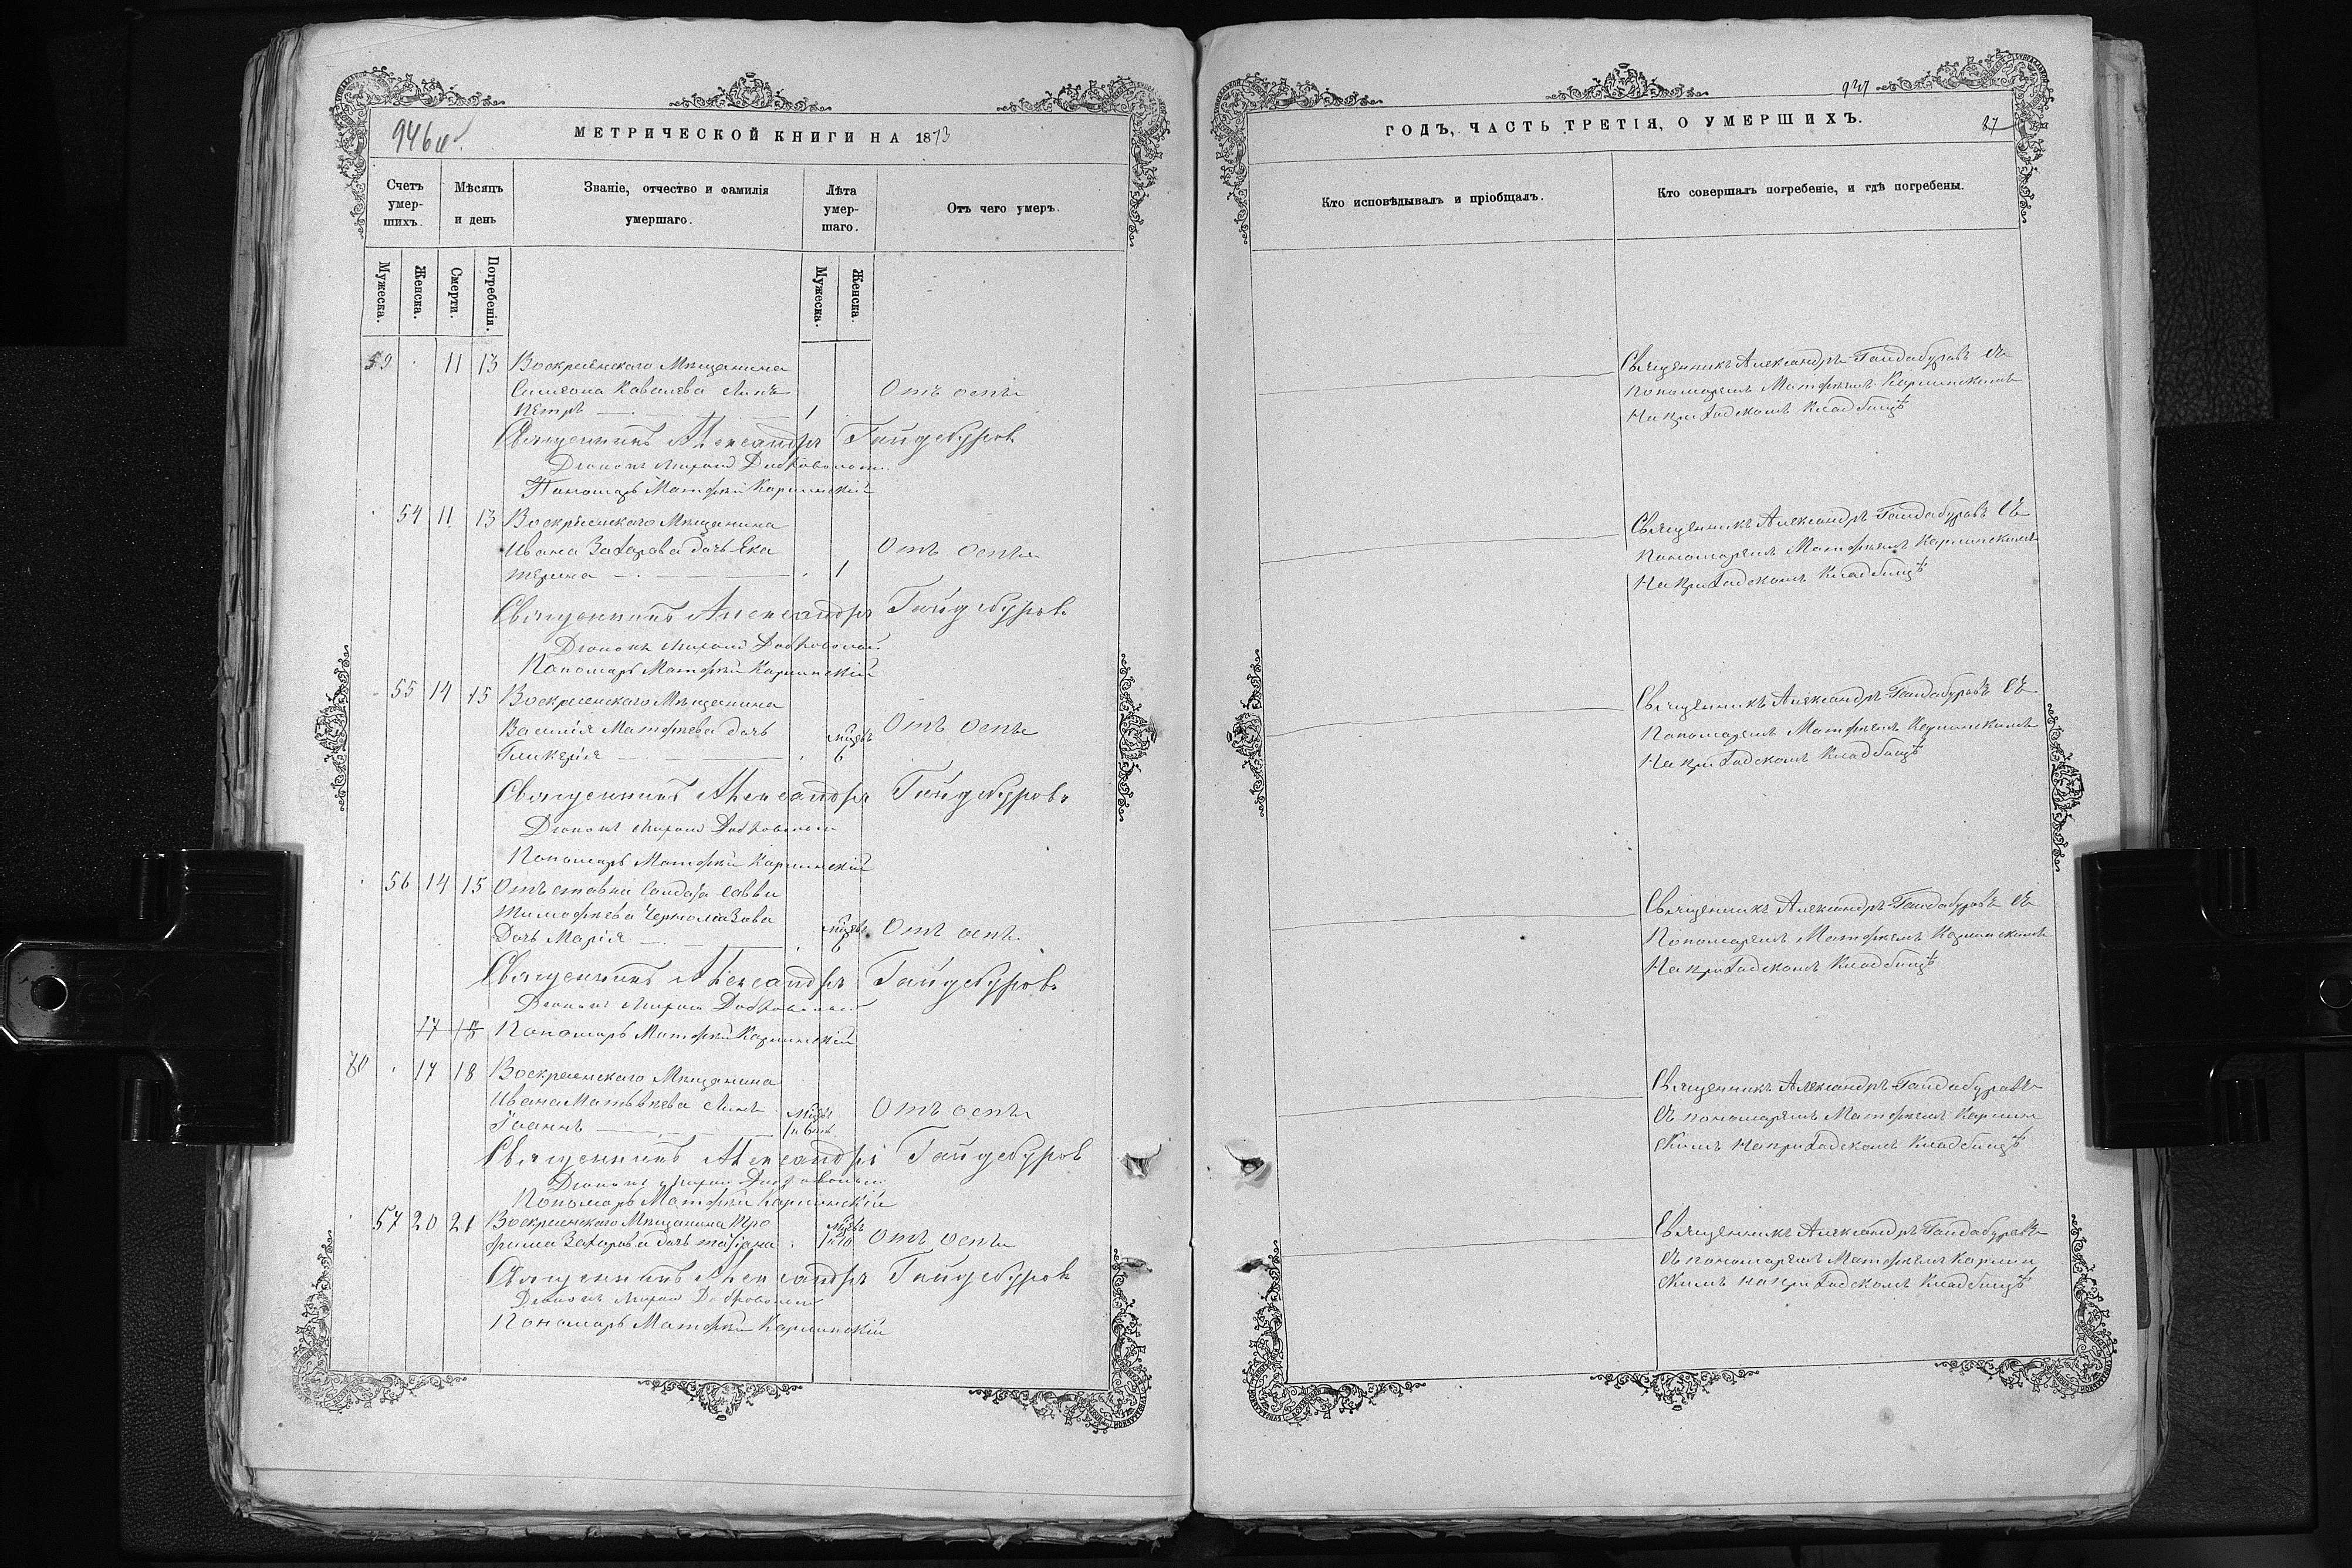 МЕТРИЧЕСКОЙ КНИГИ НА 1873
Счетъ умер-шихъ.
Мѣсяцъ и день
Званіе, отчество и фамилія умершаго.
Лѣта умер-шаго.
Отъ чего умеръ.
Мужеска.
Женска.
Смерти.
Погребенія.
Мужеска.
Женска.
59 11 13 Воскресенскаго Мѣщанина
Симеона Ковалева сынъ
Петръ 1 Отъ оспы
Священникъ Александръ Гайдебуровъ
Діаконъ
Пономарь Матфей Карминскій
54 11 13 Воскресенскаго Мѣщанина
Ивана Захарова дочь Ека
терина 1 Отъ оспы
Священникъ Александръ Гайдебуровъ
Діаконъ
Пономарь Матфей Карминскій
55 14 15 Воскресенскаго Мѣщанина
Василія Матфеева дочь
Гликерія 6 Отъ оспы
Священникъ Александръ Гайдебуровъ
Діаконъ
Пономарь Матфей Карминскій
56 14 15 Отъставн Солдата Саввы
Тимофеева
Дочь Марія 6 Отъ оспы
Священникъ Александръ Гайдебуровъ
Діаконъ
17 18 Пономарь Матфей Карминскій
17 18 Воскресенскаго Мѣщанина
Ивана Матвѣева сынъ
Іоаннъ Отъ оспы
Священникъ Александръ Гайдебуровъ
Діаконъ
Пономарь Матфей Карминскій
57 20 21 Воскресенскаго Мѣщанина Тро
фима Захарова дочь Отъ оспы
Священникъ Александръ Гайдебуровъ
Діаконъ
Пономарь Матфей Карминскій
ГОДЪ, ЧАСТЬ ТРЕТІЯ, О УМЕРШИХЪ.
87
Кто исповѣдывалъ и пріобщалъ.
Кто совершалъ погребеніе, и гдѣ погребены.
Священникъ Александръ Гайдабуровъ съ
пономаремъ Матфеемъ Карминскимъ
На приходскомъ кладбищѣ
Священникъ Александръ Гайдабуровъ съ
пономаремъ Матфеемъ Карминскимъ
На приходскомъ кладбищѣ
Священникъ Александръ Гайдабуровъ съ
пономаремъ Матфеемъ Карминскимъ
На приходскомъ кладбищѣ
Священникъ Александръ Гайдабуровъ съ
пономаремъ Матфеемъ Карминскимъ
На приходскомъ кладбищѣ
Священникъ Александръ Гайдабуровъ
съ пономаремъ Матфеемъ Кармин
скимъ на приходскомъ кладбищѣ
Священникъ Александръ Гайдабуровъ
съ пономаремъ Матфеемъ Кармин
скимъ на приходскомъ кладбищѣ